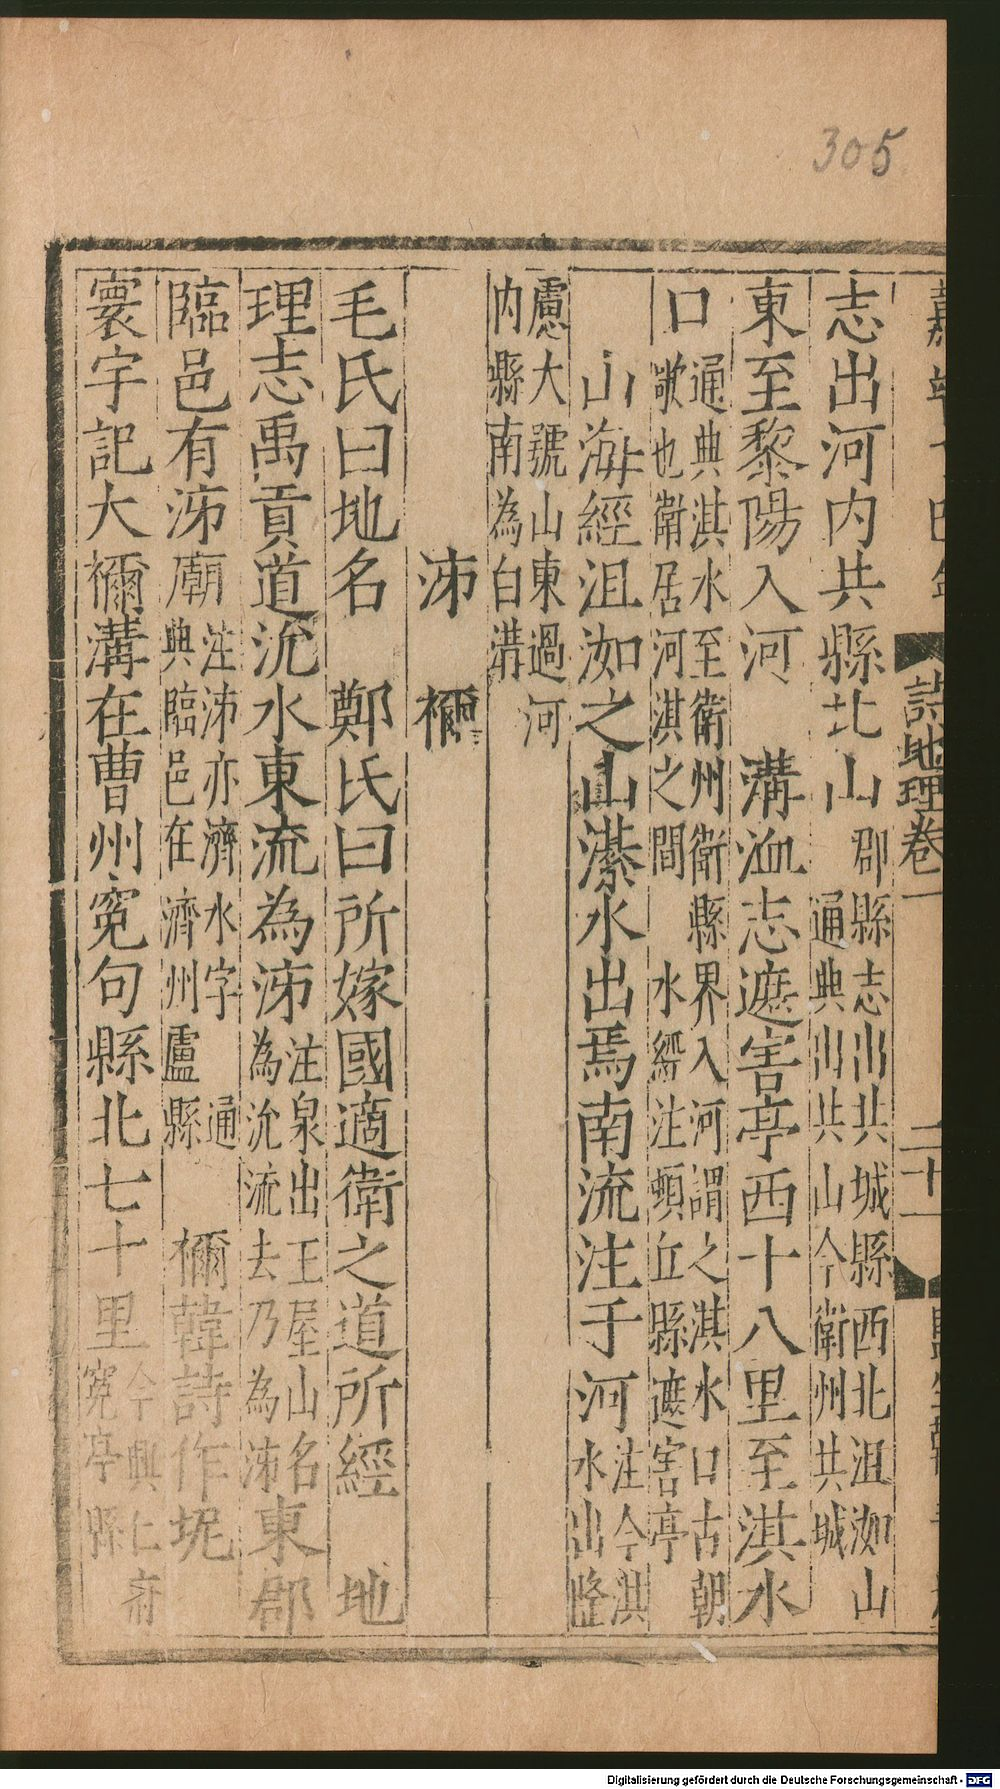 305
詩地理卷一
二十一
志出河内共縣北山郡縣志出共城縣西北沮洳山通典出共山今衛州共城
東至黎陽入河　溝洫志遮害亭西十八里至淇水
口通典淇水至衛州衛縣界入河謂之淇水口古朝歌也衛居河淇之間　水經注頓丘縣遮害亭
山海經沮洳之山濝水出焉南流注于河注今淇水出隆
慮大號山東過河内縣南為白溝
泲　禰
毛氏曰地名　鄭氏曰所嫁國適衛之道所經　地
理志禹貢道沇水東流為泲注泉出王屋山名為沇流去乃為泲東郡
臨邑有泲廟注泲亦濟水字　通典臨邑在濟州盧縣　禰韓詩作坭
寰宇記大禰溝在曹州冤句縣北七十里今興仁府冤亭縣
Digitalisierung gefördert durch die Deutsche Forschungsgemeinschaft - DFG